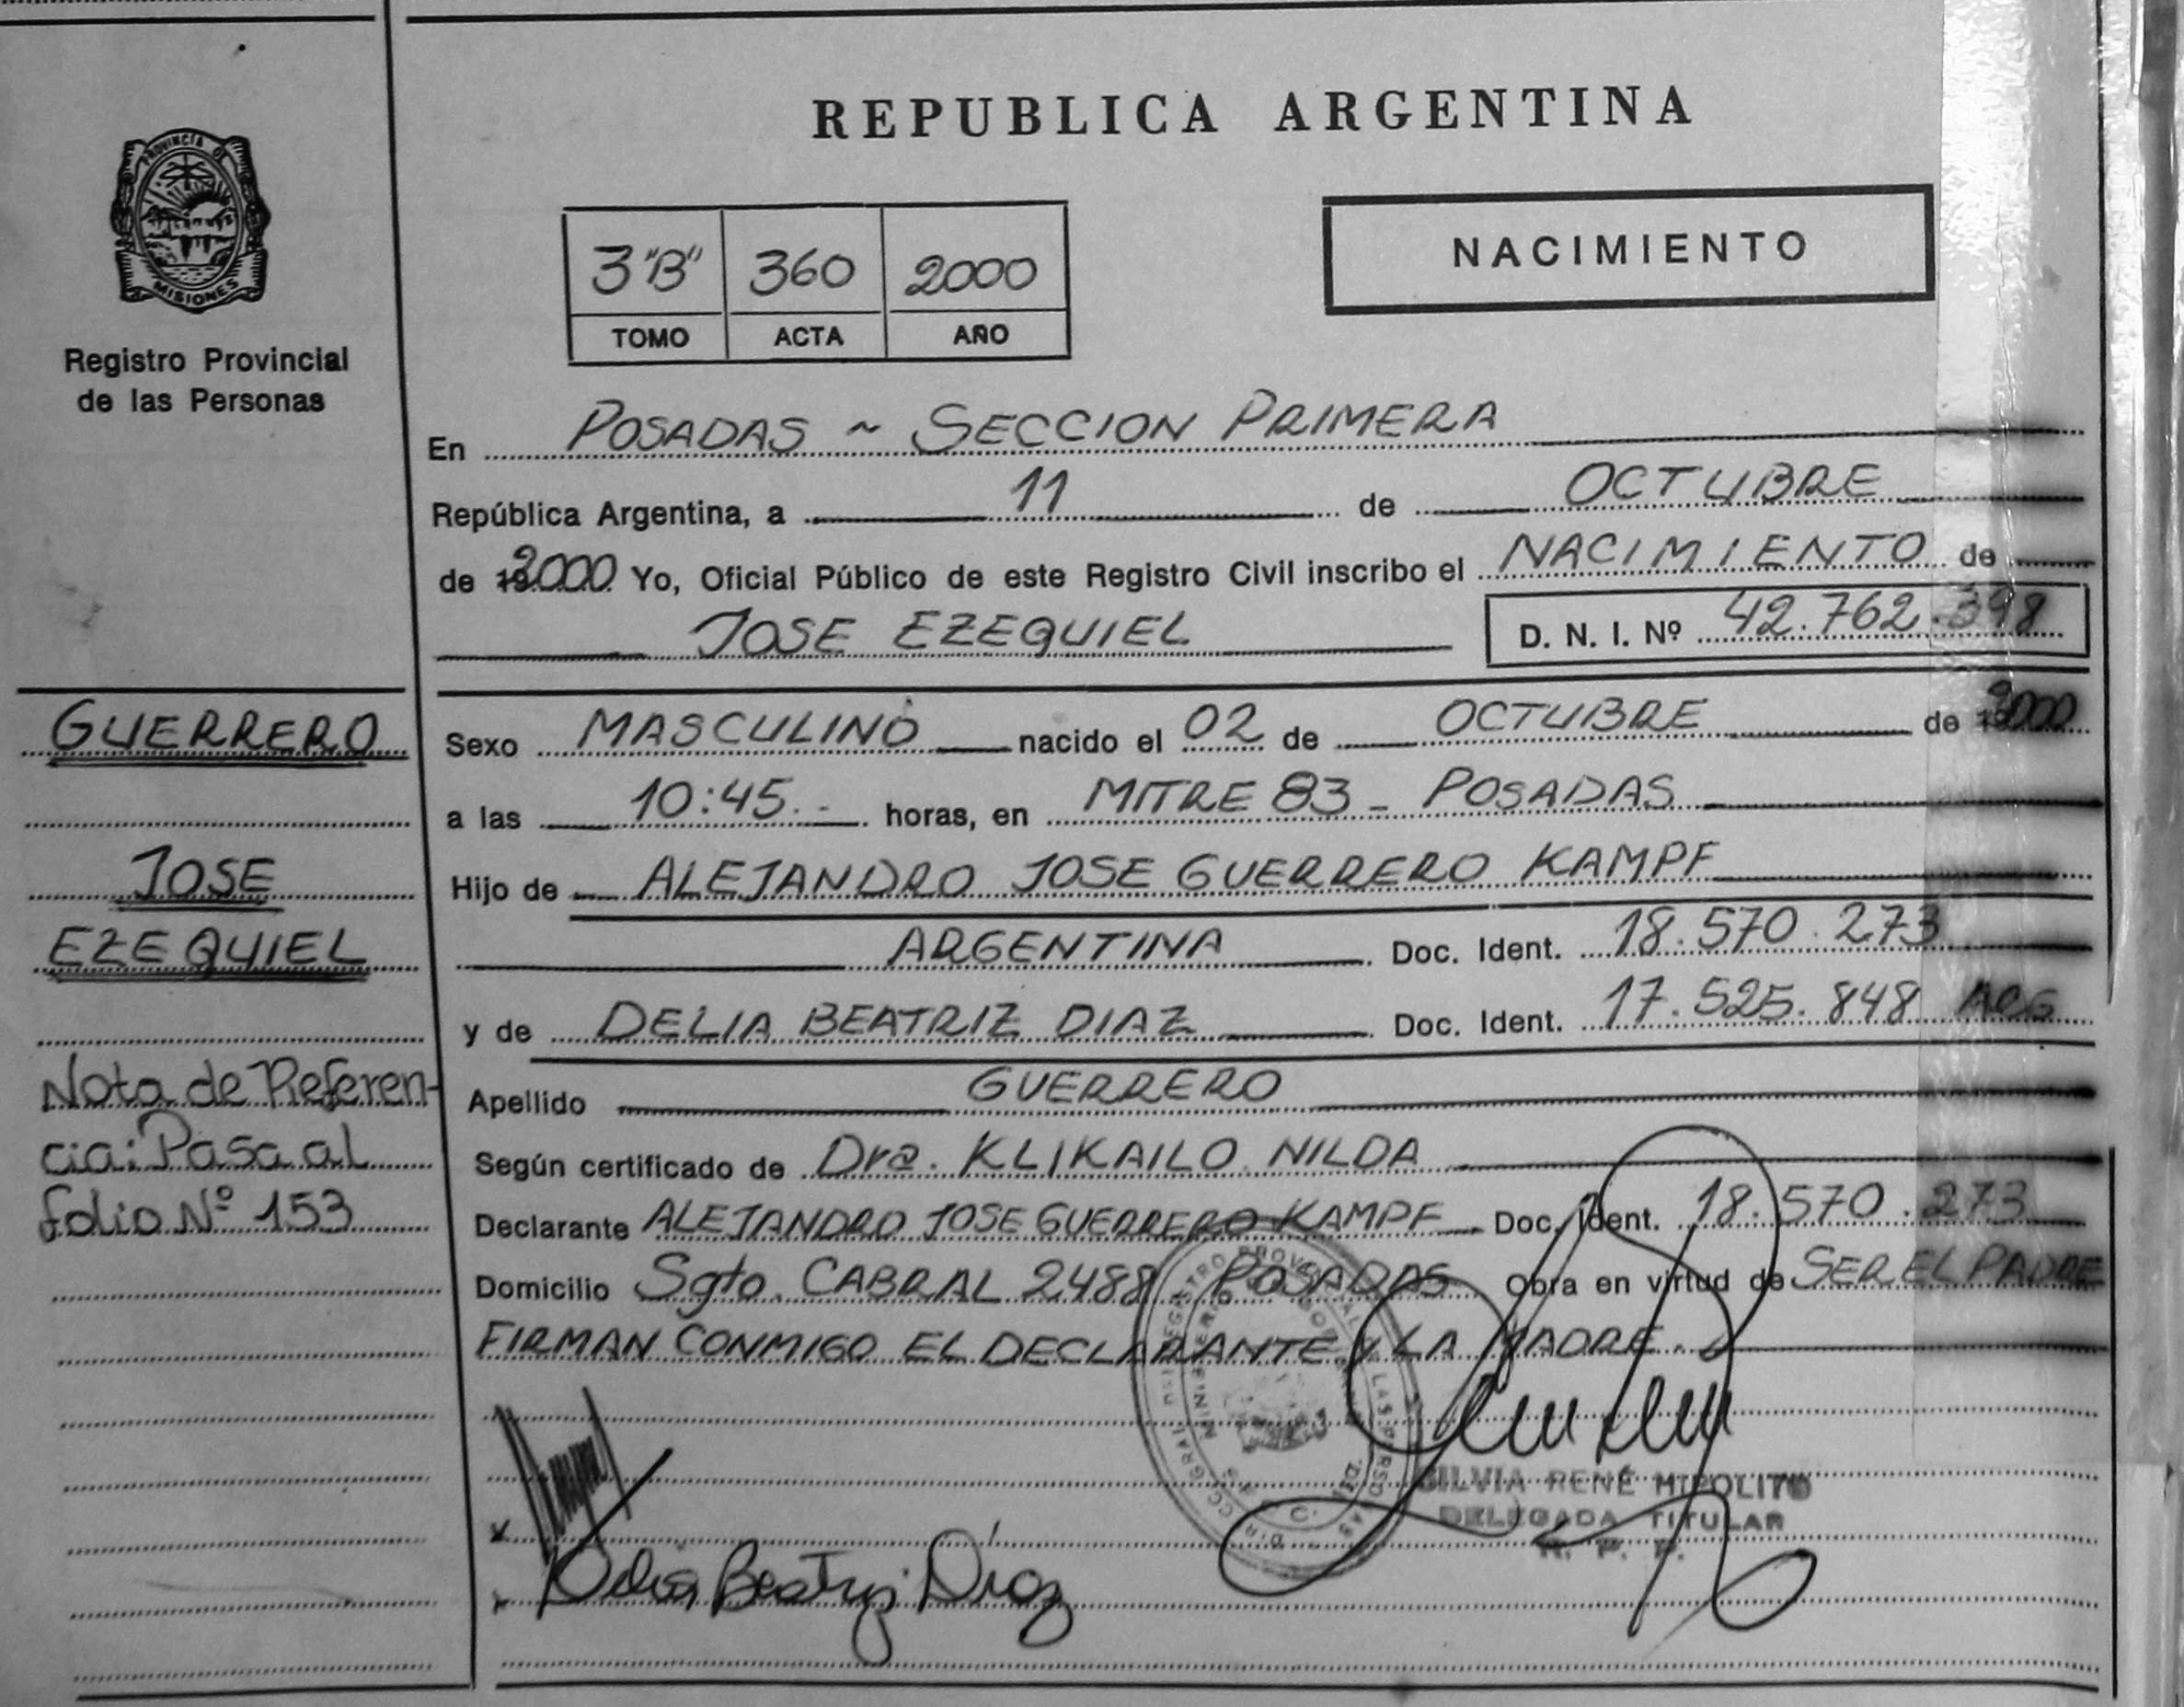 PROVINCIA DE
MISIONES
Registro Provincial
de las Personas
GUERRERO
JOSE
EZEQUIEL
Nota de Referen-
cia: Pasa al
folio Nº 153
REPUBLICA ARGENTINA
3 "B" 360 2000
TOMO ACTA AÑO
NACIMIENTO
En POSADAS ~ SECCION PRIMERA
República Argentina, a 11 de OCTUBRE
de 2000 Yo, Oficial Público de este Registro Civil inscribo el NACIMIENTO de
JOSE EZEQUIEL D. N. I. Nº 42.762.398
Sexo MASCULINO nacido el 02 de OCTUBRE de 2000
a las 10:45.- horas, en MITRE 83 - POSADAS
Hijo de ALEJANDRO JOSE GUERRERO KAMPF
ARGENTINA Doc. Ident. 18.570.273
y de DELIA BEATRIZ DIAZ Doc. Ident. 17.525.848 ARG
Apellido GUERRERO
Según certificado de Dra. KLIKAILO NILDA
Declarante ALEJANDRO JOSE GUERRERO KAMPF Doc. Ident. 18.570.273
Domicilio Sgto. CABRAL 2488 - POSADAS Obra en virtud de SER EL PADRE
FIRMAN CONMIGO EL DECLARANTE Y LA MADRE.
SILVIA RENÉ HIPOLITO
DELEGADA TITULAR
R. P. P.
Delia Beatriz Diaz